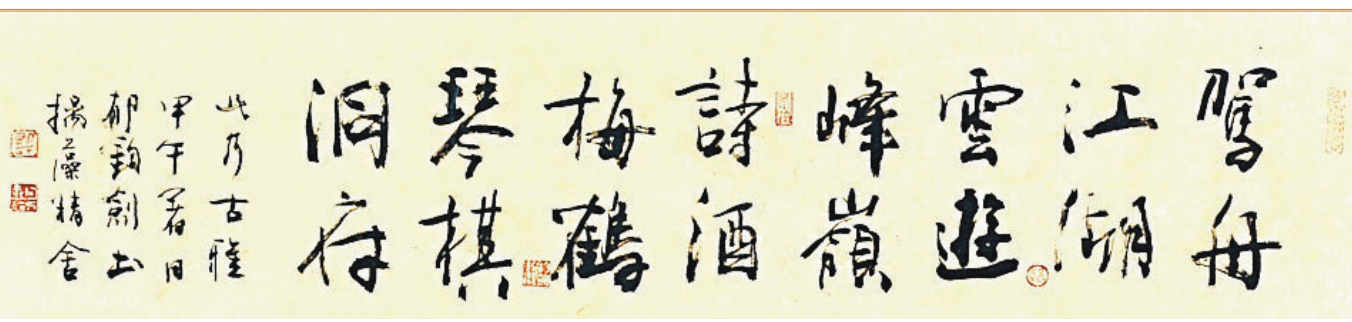 駕舟
江湖
雲遊
峰嶺
詩酒
梅鶴
琴棋
洞府
此乃古雅
甲午署日
郁鈞劍書
揚藻精舍